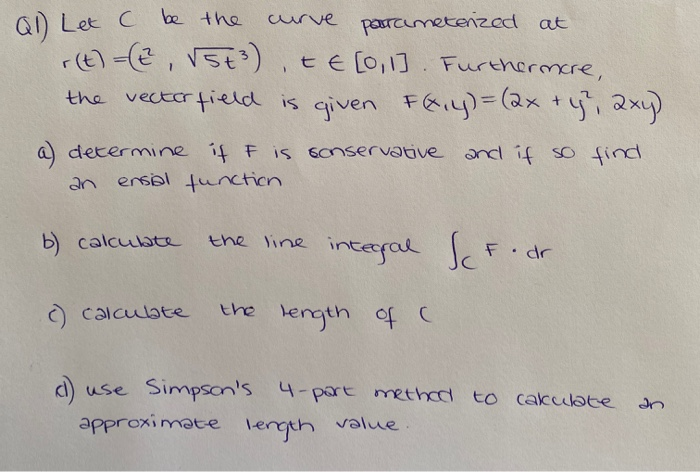 Q1) Let C be the curve parameterized at
r(t) = (t², √5t³), t ∈ [0,1]. Furthermore,
the vector field is given F(x,y) = (2x + y², 2xy)
a) determine if F is conservative and if so find
an ensial function
b) calculate the line integral ∫_C F · dr
c) calculate the length of C
d) use Simpson's 4-part method to calculate an
approximate length value.